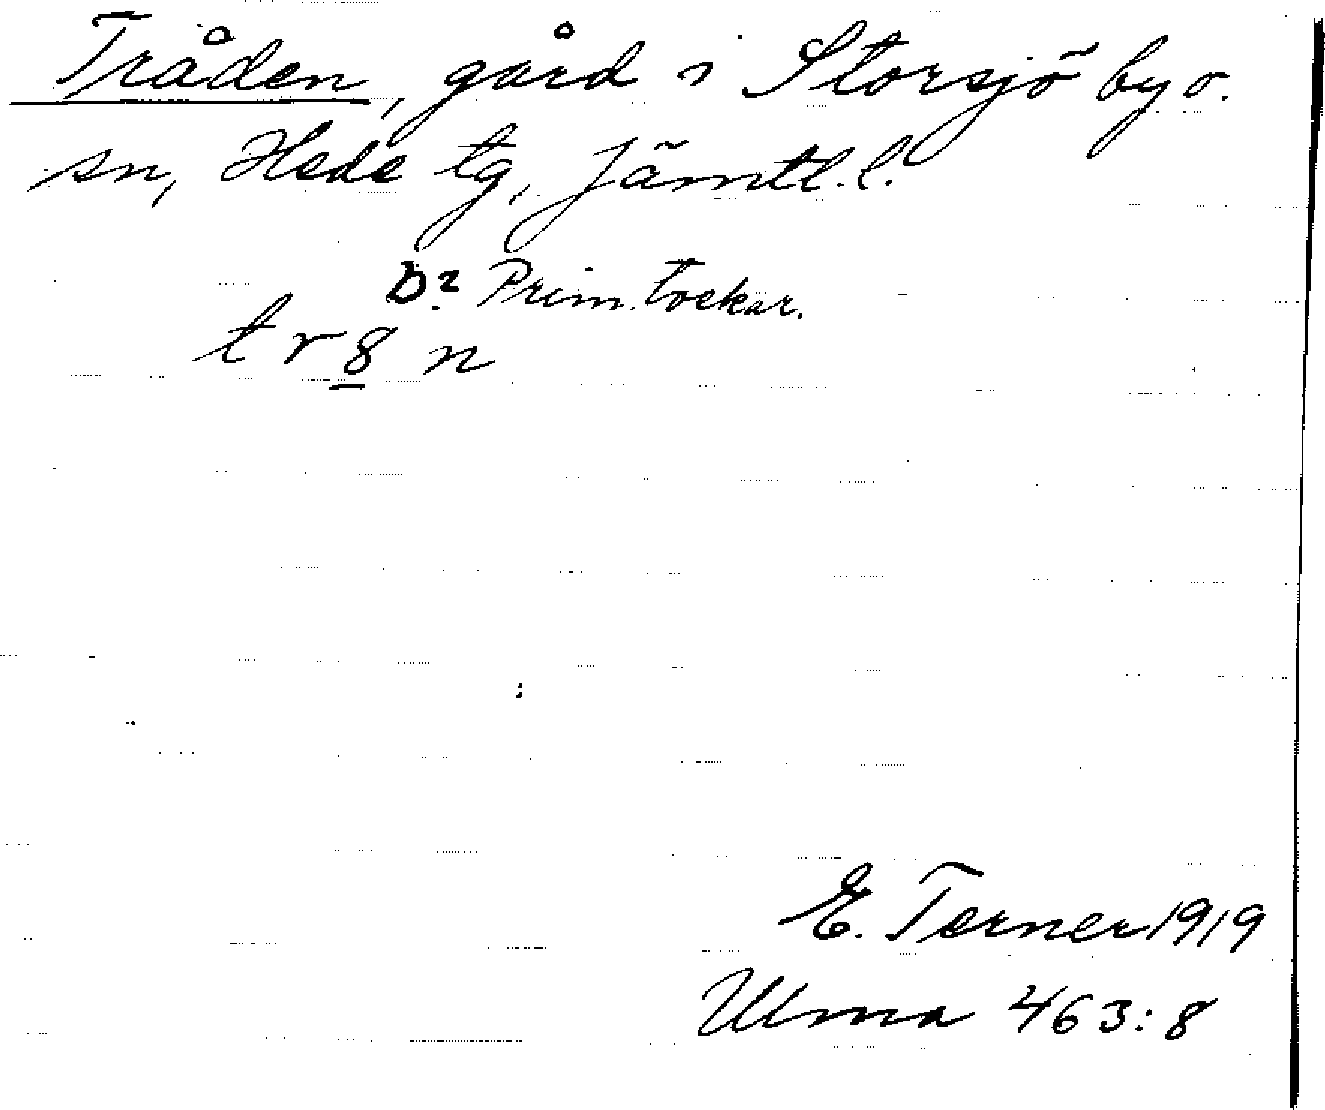 Tråden, gård i Storsjö by o.
sn, Hede tg, Jämtl. l.
D? Prim. tvekar.
t r 8 n
E. Terner 1919
Ulma 463:8